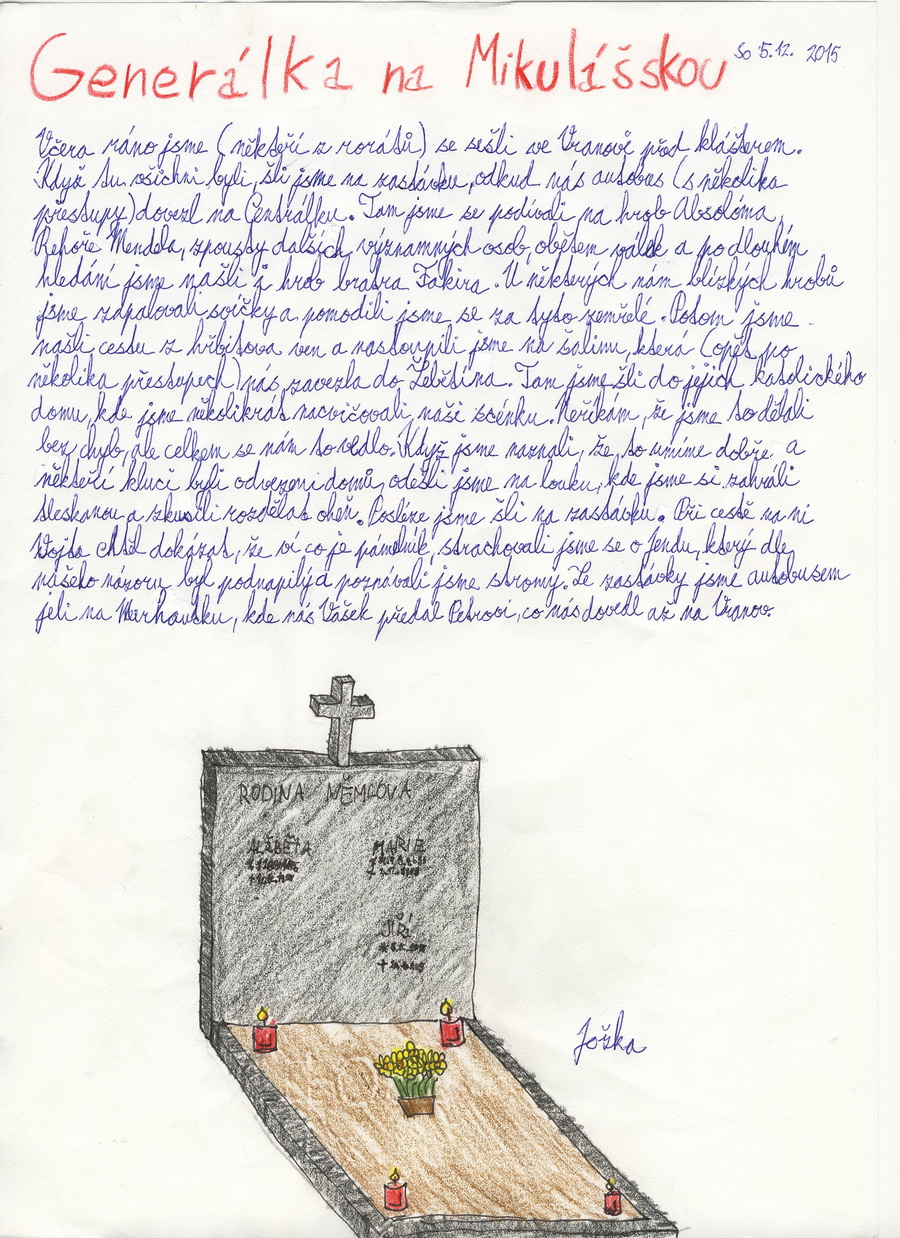 Generálka na Mikulášskou So 5.12. 2015
Včera ráno jsme (někteří z rorátů) se sešli ve Vranově před klášterem.
Když tu všichni byli, šli jsme na zastávku, odkud nás autobus (s několika
přestupy) dovezl na Centrálku. Tam jsme se podívali na hrob Absolóma,
Řehoře Mendela, spousty dalších významných osob, obětem válek a po dlouhém
hledání jsme našli i hrob bratra Fakira. U některých nám blízkých hrobů
jsme zapalovali svíčky a pomodlili jsme se za tyto zemřelé. Potom jsme
našli cestu z hřbitova ven a nastoupili jsme na šalinu, která (opět po
několika přestupech) nás zavezla do Žebětína. Tam jsme šli do jejich katolického
domu, kde jsme několikrát nacvičovali naši scénku. Neříkám, že jsme to dělali
bez chyb, ale celkem se nám to vedlo. Když jsme uznali, že to umíme dobře a
někteří kluci byli odvezeni domů, odešli jsme na louku, kde jsme si zahráli
sleskanou a zkusili rozdělat oheň. Posléze jsme šli na zastávku. Při cestě na ni
Vojta chtěl dokázat, že ví co je památník, strachovali jsme se o Jendu, který dle
našeho názoru byl podnapilý a poznávali jsme stromy. Ze zastávky jsme autobusem
jeli na kde nás Vašek předal Petrovi, co nás dovedl až na Vranov.
RODINA NĚMCOVA
ALŽBĚTA MARIE
JIŘÍ
Joška